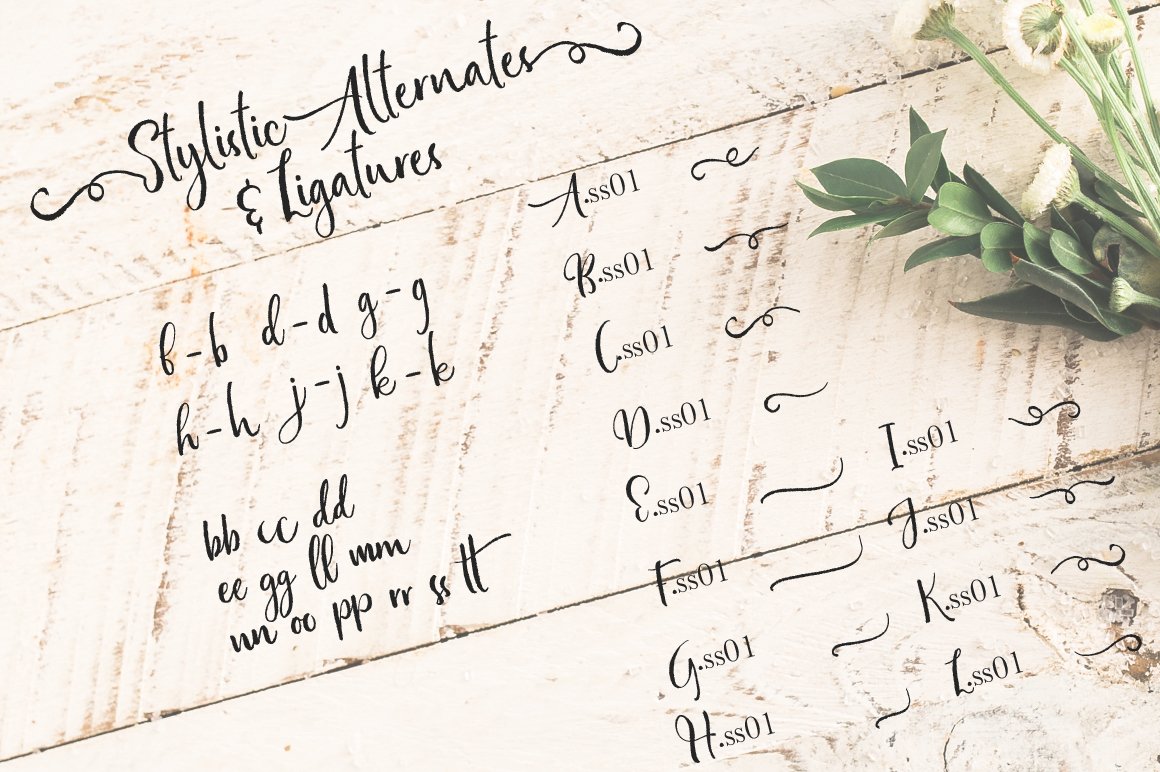 Stylistic Alternates
& Ligatures
b - b d - d g - g
h - h j - j k - k
bb cc dd
ee gg ll mm
nn oo pp rr ss tt
A.ss01
B.ss01
C.ss01
D.ss01
E.ss01
F.ss01
G.ss01
H.ss01
I.ss01
J.ss01
K.ss01
L.ss01